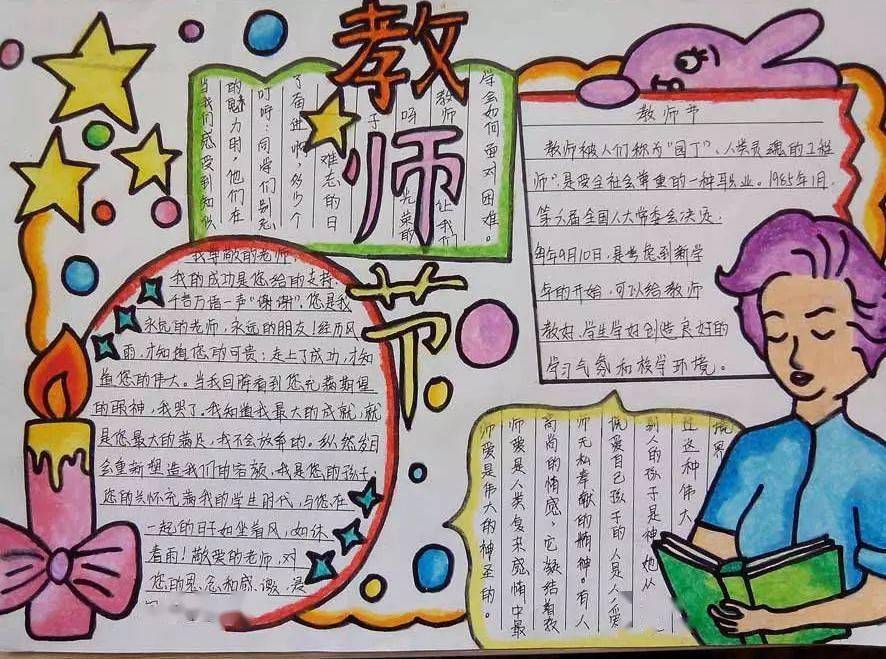 教师节
当我们感受到知识
的魅力时,他们在
叮咛:同学们别忘
了奋进啊,多少个
难忘的日
子
呀 光荣的
教师 让我们
学会如何面对困难。
教师节
教师被人们称为“园丁”、人类灵魂的工程
师”,是受全社会尊重的一种职业。1985年1月,
第六届全国人大常委会决定:
每年9月10日,是考虑到新学
年的开始,可以给教师
教好,学生学好创造良好的
学习气氛和校学环境。
我尊敬的老师
我的成功是您给的支持,
千言万语一声“谢谢”。您是我
永远的老师,永远的朋友!经历风
雨,才知道您的可贵;走上了成功,才知
道您的伟大。当我回眸看到您充满期望
的眼神,我哭了。我知道我最大的成就,就
是您最大的满足,我不会放弃的。纵然岁月
会重新塑造我们的容颜,我是您的孩子;
您的关怀充满我的学生时代,与您在
一起的日子如坐着风,如沐
着雨!敬爱的老师,对
您的思念和感激,浸
师爱是伟大的神圣的。
师爱是人类复杂感情中最
高尚的情感,它凝结着教
师无私奉献的精神。有人
说爱自己孩子的人是人,爱
别人的孩子是神,她从
这种伟大
境界